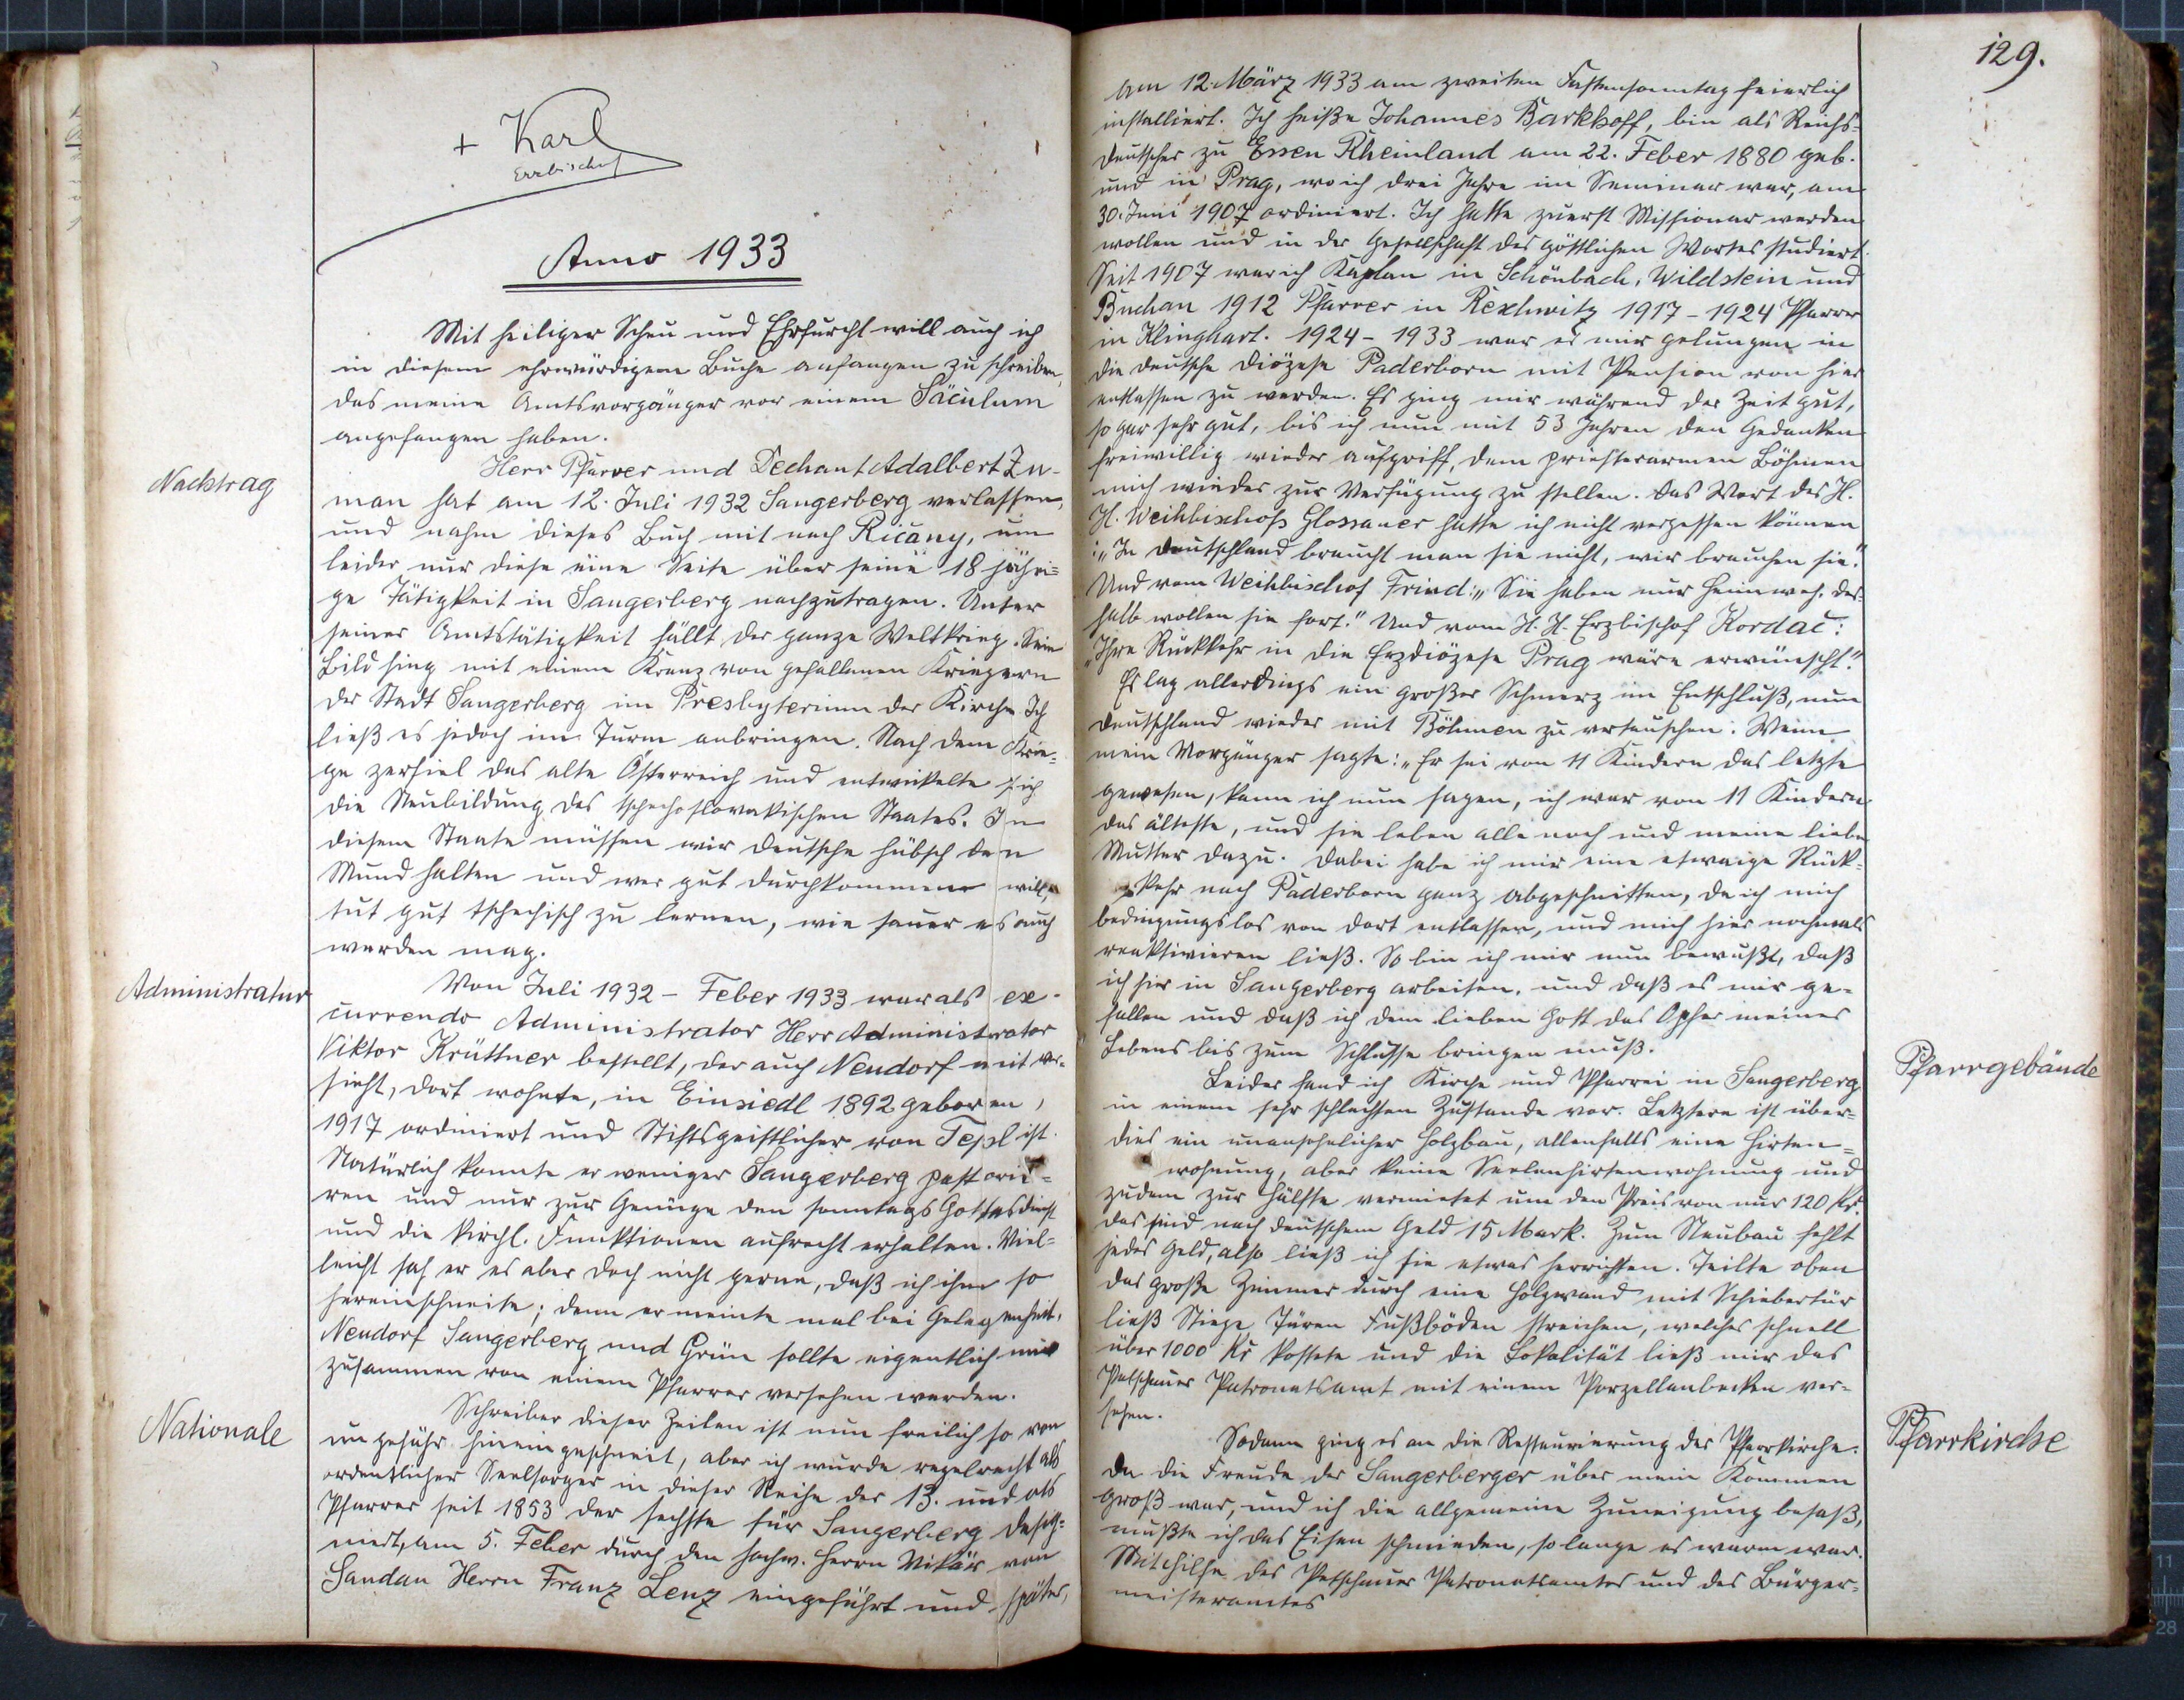 + Karl
Erzbischof
Anno 1933
Mit heiliger Scheu und Ehrfurcht will auch ich
in diesem ehrwürdigem Buche anfangen zu schreiben,
das meine Amtsvorgänger vor einem Säculum
angefangen haben.
Nachtrag
Herr Pfarrer und Dechant Adalbert Zu-
man hat am 12. Juli 1932 Sangerberg verlassen,
und nahm dieses Buch mit nach Ričany, um
leider nur diese eine Seite über seine 18 jähri=
ge Tätigkeit in Sangerberg nachzutragen. Unter
seiner Amtstätigkeit fällt der ganze Weltkrieg. Sein
Bild hing mit einem Kranz von gefallenen Kriegern
der Stadt Sangerberg im Presbyterium der Kirche Ich
ließ es jedoch im Turm anbringen. Nach dem Krie=
ge zerfiel das alte Österreich und entwickelte sich
die Neubildung des tschechoslovakischen Staates. In
diesem Staate müssen wir Deutsche hübsch den
Mund halten und wer gut durchkommen will,
tut gut tschechisch zu lernen, wie sauer es auch
werden mag.
Administratur
Von Juli 1932 - Feber 1933 war als ex-
currendo Administrator Herr Administrator
Viktor Krüttner bestellt, der auch Neudorf mit ver-
sieht, dort wohnte, in Einsiedl 1892 geboren,
1917 ordiniert und Stiftsgeistlicher von Tepl ist.
Natürlich konnte er weniger Sangerberg pastorie=
ren und nur zur Genüge den sonntags Gottesdienst
und die kirchl. Funktionen aufrecht erhalten. Viel=
leicht sah er es aber doch nicht gerne, daß ich ihm so
hereinschneite; denn er meinte mal bei Gelegenheit,
Neudorf Sangerberg und Grün sollte eigentlich nur
zusammen von einem Pfarrer versehen werden.
Nationale
Schreiber dieser Zeilen ist nun freilich so von
ungefähr hineingeschneit, aber ich wurde regelrecht als
ordentlicher Seelsorger in dieser Reihe der 13. und als
Pfarrer seit 1853 der sechste für Sangerberg desig=
niert, am 5. Feber durch den hochw. Herrn Vikär von
Sandau Herrn Franz Lenz eingeführt und später,
129.
am 12. März 1933 am zweiten Fastensonntag feierlich
installiert. Ich heiße Johannes Barkhoff, bin als Reichs=
deutscher zu Essen Rheinland am 22. Feber 1880 geb.
und in Prag, wo ich drei Jahre im Seminar war, am
30. Juni 1907 ordiniert. Ich hatte zuerst Missionar werden
wollen und in der Gesellschaft des göttlichen Wortes studiert.
Seit 1907 war ich Kaplan in Schönbach, Wildstein und
Buchau 1912 Pfarrer in 1917 - 1924 Pfarrer
in Klinghart. 1924 - 1933 war es mir gelungen in
die deutsche Diözese Paderborn mit Pension von hier
entlassen zu werden. Es ging mir während der Zeit gut,
so gar sehr gut, bis ich nun mit 53 Jahren den Gedanken
freiwillig wieder aufgriff, dem priesterarmen Böhmen
mich wieder zur Verfügung zu stellen. Das Wort des H.
H. Weihbischofs Glossauer hatte ich nicht vergessen können
: „In Deutschland braucht man sie nicht, wir brauchen sie."
Und vom Weihbischof Frind: „Sie haben nur Heimweh, des-
halb wollen sie fort." Und vom H. H. Erzbischof Kordač:
„Ihre Rückkehr in die Erzdiözese Prag wäre erwünscht."
Es lag allerdings ein großer Schmerz im Entschluß, nun
Deutschland wieder mit Böhmen zu vertauschen. Wenn
mein Vorgänger sagte: „Er sei von 11 Kindern das letzte
gewesen, kann ich nun sagen, ich war von 11 Kindern
das älteste, und sie leben alle noch und meine liebe
Mutter dazu. Dabei habe ich mir eine etwaige Rück-
kehr nach Paderborn ganz abgeschnitten, da ich mich
bedingungslos von dort entlassen, und mich hier nochmals
reaktivieren ließ. So bin ich mir nun bewußt, daß
ich hier in Sangerberg arbeiten, und daß es mir ge-
fallen und daß ich dem lieben Gott das Opfer meines
Lebens bis zum Schlusse bringen muß.
Pfarrgebäude
Leider fand ich Kirche und Pfarrei in Sangerberg
in einem sehr schlechten Zustande vor. Letztere ist über=
dies ein unansehnlicher Holzbau, allenfalls eine Hirten=
wohnung, aber keine Seelenhirtenwohnung und
zudem zur Hälfte vermietet um den Preis von nur 120 Kč.
das sind nach deutschem Geld 15 Mark. Zum Neubau fehlt
jedes Geld, also ließ ich sie etwas herrichten. Teilte oben
das große Zimmer durch eine Holzwand mit Schiebertür
ließ Stiege Türen Fußböden streichen, welches schnell
über 1000 Kč kostete und die Lokalität ließ mir das
Petschauer Patronatsamt mit einem Porzellanbecken ver-
sehen.
Pfarrkirche
Sodann ging es an die Restaurierung der Pfarrkirche.
Da die Freude der Sangerberger über mein Kommen
groß war, und ich die allgemeine Zuneigung besaß,
mußte ich das Eisen schmieden, so lange es warm war.
Mithilfe des Petschauer Patronatsamtes und des Bürger=
meisteramtes
11
28